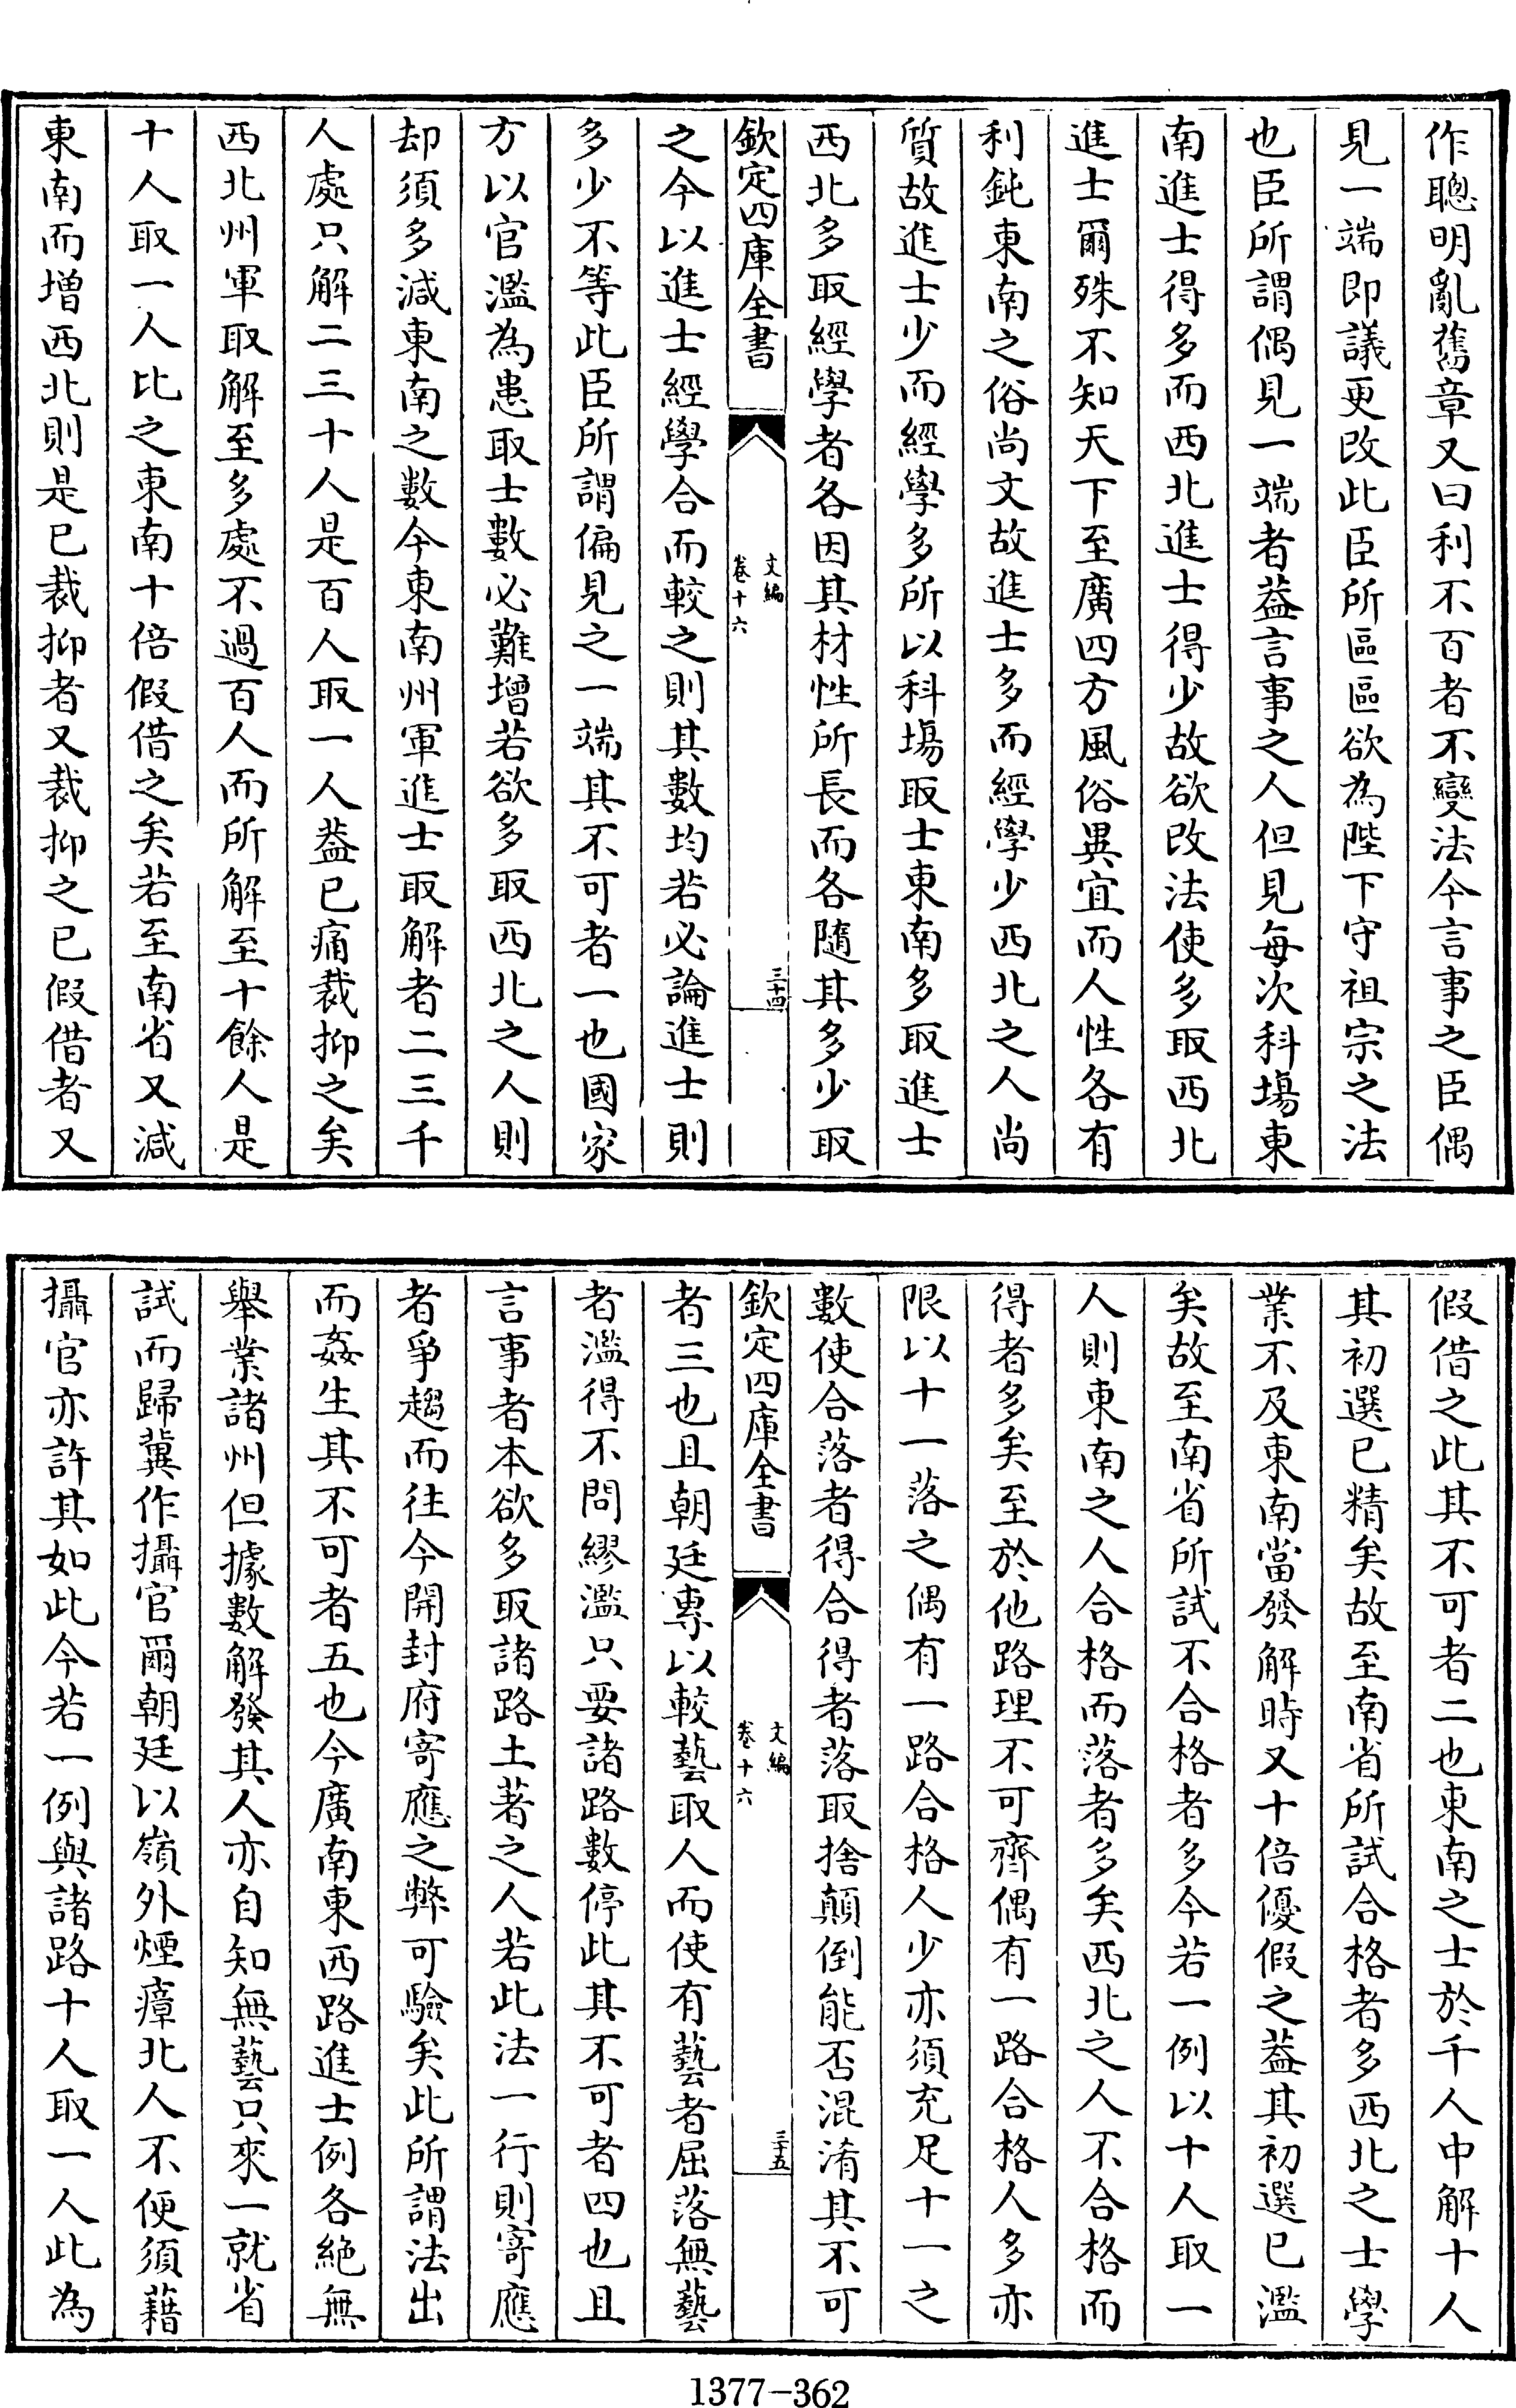 作聰明亂舊章又曰利不百者不變法今言事之臣偶
見一端即議更改此臣所區區欲為陛下守祖宗之法
也臣所謂偶見一端者葢言事之人但見每次科塲東
南進士得多而西北進士得少故欲改法使多取西北
進士爾殊不知天下至廣四方風俗異宜而人性各有
利鈍東南之俗尚文故進士多而經學少西北之人尚
質故進士少而經學多所以科塲取士東南多取進士
西北多取經學者各因其材性所長而各隨其多少取
欽定四庫全書
文編
卷十六
三十四
之今以進士經學合而較之則其數均若必論進士則
多少不等此臣所謂偏見之一端其不可者一也國家
方以官濫為患取士數必難增若欲多取西北之人則
却須多減東南之數今東南州軍進士取解者二三千
人處只解二三十人是百人取一人葢已痛裁抑之矣
西北州軍取解至多處不過百人而所解至十餘人是
十人取一人比之東南十倍假借之矣若至南省又減
東南而增西北則是已裁抑者又裁抑之已假借者又
假借之此其不可者二也東南之士於千人中解十人
其初選已精矣故至南省所試合格者多西北之士學
業不及東南當發解時又十倍優假之葢其初選已濫
矣故至南省所試不合格者多今若一例以十人取一
人則東南之人合格而落者多矣西北之人不合格而
得者多矣至於他路理不可齊偶有一路合格人多亦
限以十一落之偶有一路合格人少亦須充足十一之
數使合落者得合得者落取捨顛倒能否混淆其不可
欽定四庫全書
文編
卷十六
三十五
者三也且朝廷專以較藝取人而使有藝者屈落無藝
者濫得不問繆濫只要諸路數停此其不可者四也且
言事者本欲多取諸路土著之人若此法一行則寄應
者爭趨而往今開封府寄應之弊可驗矣此所謂法出
而姦生其不可者五也今廣南東西路進士例各絕無
舉業諸州但據數解發其人亦自知無藝只來一就省
試而歸冀作攝官爾朝廷以嶺外煙瘴北人不便須藉
攝官亦許其如此今若一例與諸路十人取一人此為
1377-362